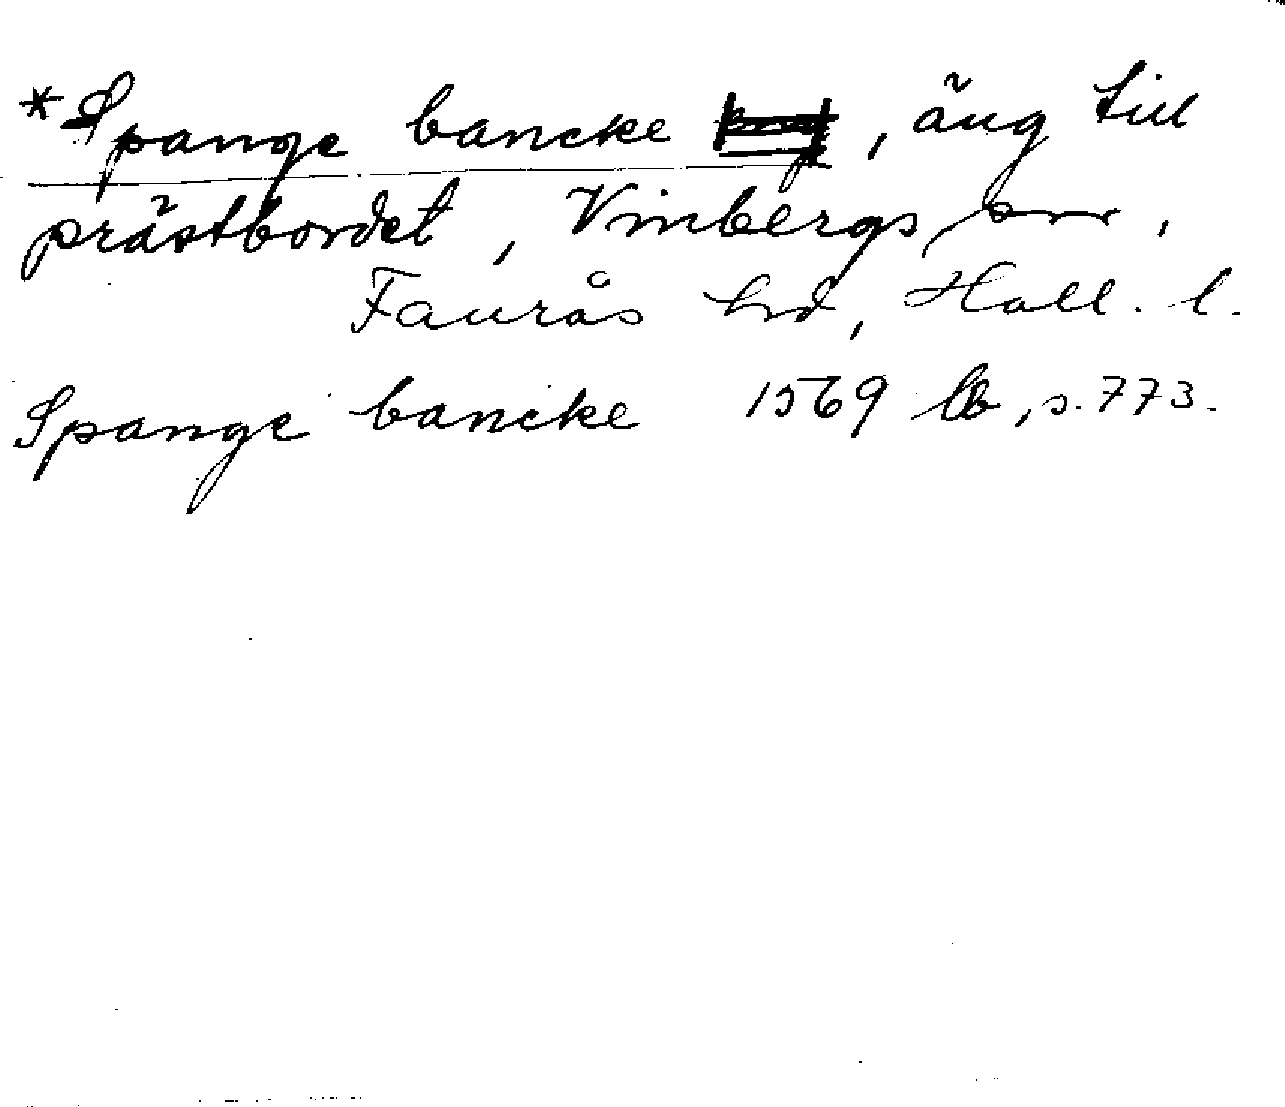 *Spange bancke, äng till
prästbordet, Vinbergs sn,
Faurås hd, Hall. l.
Spange bancke 1569 lb, s. 773.